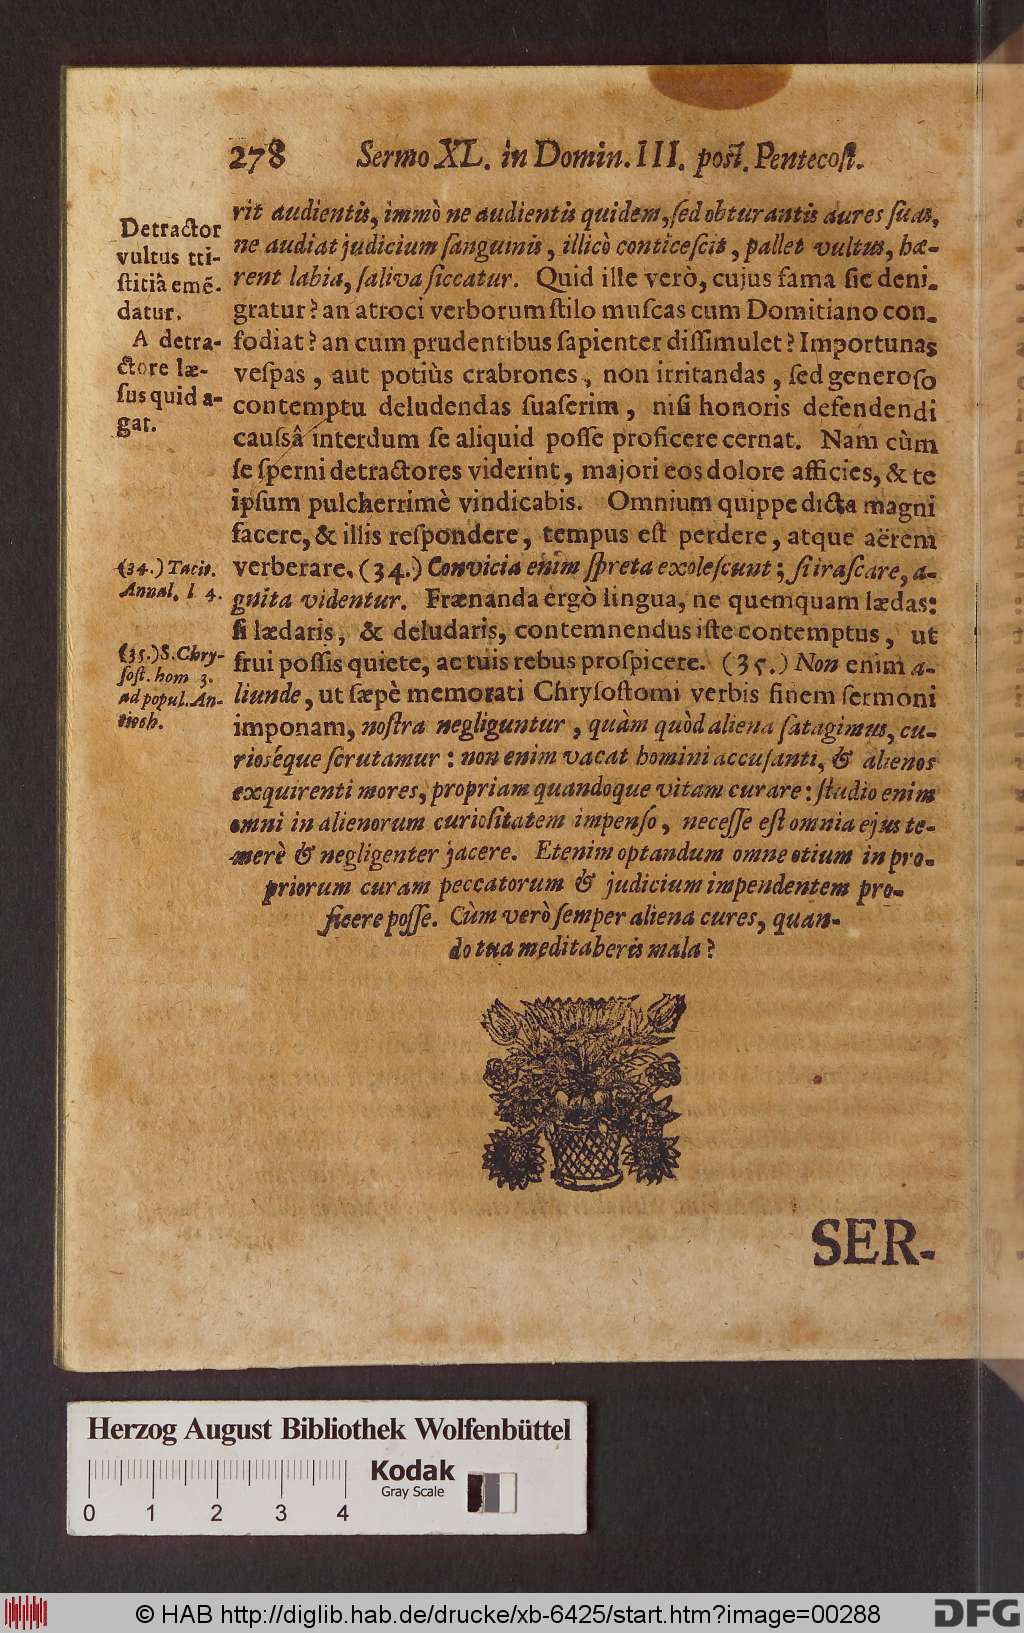 278 Sermo XL. in Domin. III. post. Pentecost.
rit audientis, immò ne audientis quidem, sed obturantis aures suas,
ne audiat judicium sanguinis, illicò conticescit, pallet vultus, hæ-
rent labia, saliva siccatur. Quid ille verò, cujus fama sic deni-
gratur? an atroci verborum stilo muscas cum Domitiano con-
fodiat? an cum prudentibus sapienter dissimulet? Importunas
vespas, aut potiùs crabrones, non irritandas, sed generoso
contemptu deludendas suaserim, nisi honoris defendendi
caussâ interdum se aliquid posse proficere cernat. Nam cùm
se sperni detractores viderint, majori eos dolore afficies, & te
ipsum pulcherrimè vindicabis. Omnium quippe dicta magni
facere, & illis respondere, tempus est perdere, atque aërem
verberare. (34.) Convicia enim spreta exolescunt; si irascare, a-
gnita videntur. Frænanda ergò lingua, ne quemquam lædas:
si lædaris, & deludaris, contemnendus iste contemptus, ut
frui possis quiete, ac tuis rebus prospicere. (35.) Non enim a-
liunde, ut sæpè memorati Chrysostomi verbis finem sermoni
imponam, nostra negliguntur, quàm quòd aliena satagimus, cu-
rioséque scrutamur: non enim vacat homini accusanti, & alienos
exquirenti mores, propriam quandoque vitam curare: studio enim
omni in alienorum curiositatem impenso, necesse est omnia ejus te-
merè & negligenter jacere. Etenim optandum omne otium in pro-
priorum curam peccatorum & judicium impendentem pro-
ficere posse. Cùm verò semper aliena cures, quan-
do tua meditaberis mala?
Detractor
vultus tri-
stitiâ emẽ-
datur.
A detra-
ctore læ-
sus quid a-
gat.
(34.) Tacit.
Annal. l. 4.
(35.) S. Chry-
sost. hom 3.
ad popul. An-
tioch.
SER-
Herzog August Bibliothek Wolfenbüttel
Kodak
Gray Scale
0 1 2 3 4
© HAB http://diglib.hab.de/drucke/xb-6425/start.htm?image=00288
DFG